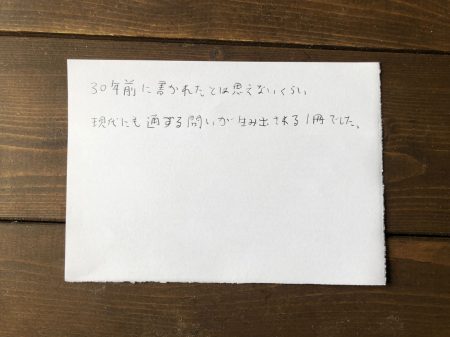 30年前に書かれたとは思えないくらい
現代にも通ずる問いが生み出される1冊でした。